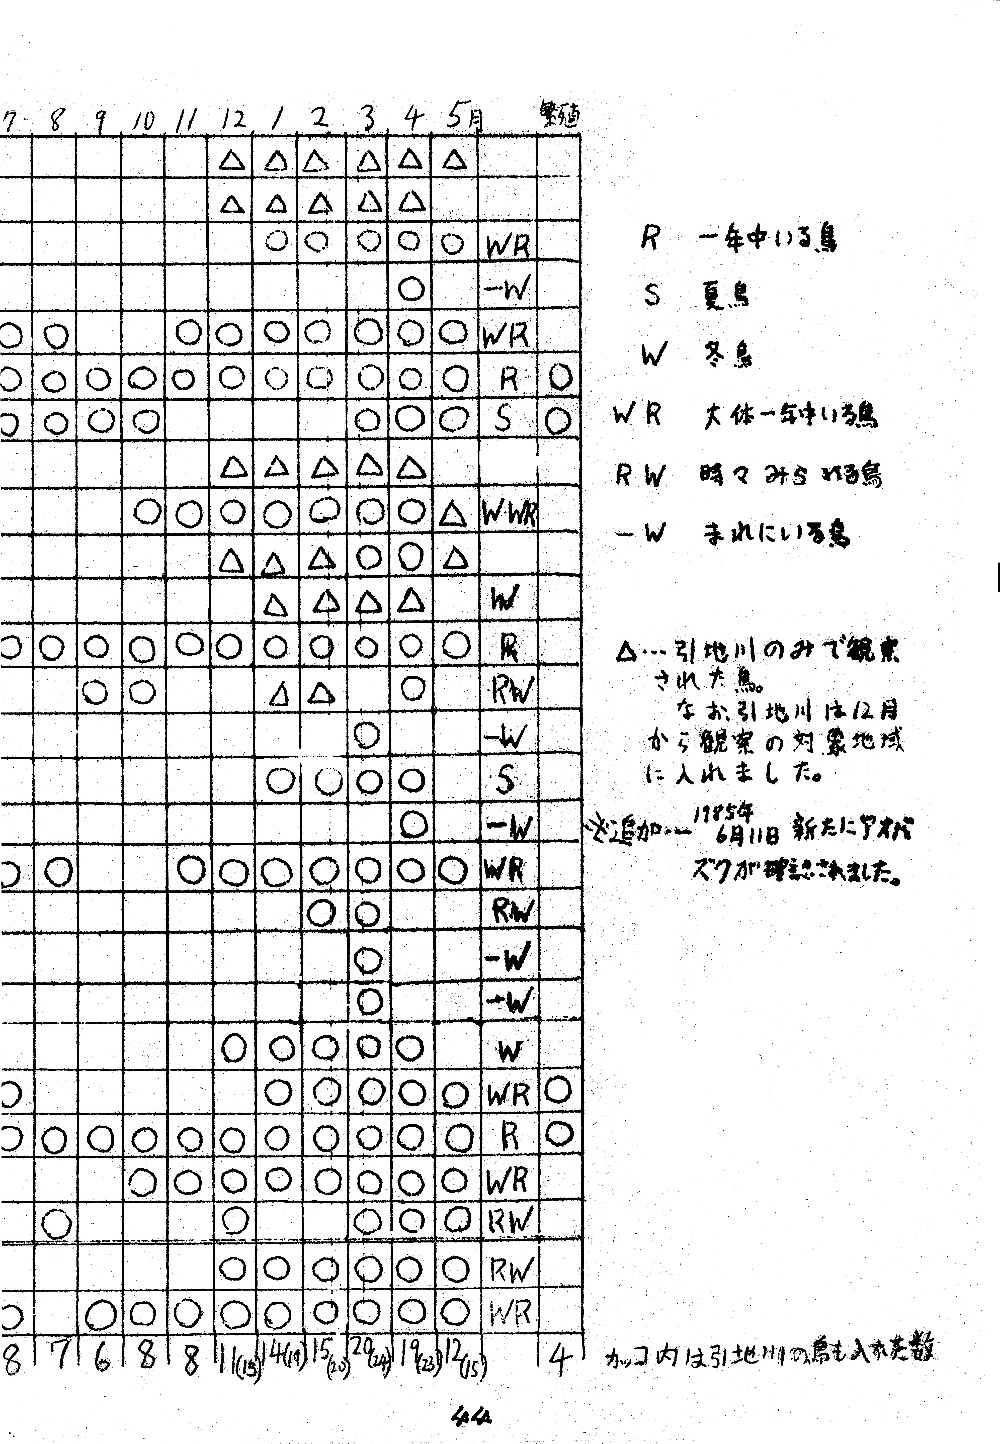 7 8 9 10 11 12 1 2 3 4 5月 繁殖
△ △ △ △ △ △
△ △ △ △ △
○ ○ ○ ○ ○ WR
○ -W
○ ○ ○ ○ ○ ○ ○ ○ ○ WR
○ ○ ○ ○ ○ ○ ○ ○ ○ ○ ○ R ○
○ ○ ○ ○ ○ ○ ○ S ○
△ △ △ △ △
○ ○ ○ ○ ○ ○ ○ △ WWR
△ △ △ ○ ○ △
△ △ △ △ W
○ ○ ○ ○ ○ ○ ○ ○ ○ ○ ○ R
○ ○ △ △ ○ RW
○ -W
○ ○ ○ ○ S
○ -W
○ ○ ○ ○ ○ ○ ○ ○ ○ WR
○ ○ RW
○ -W
○ -W
○ ○ ○ ○ ○ W
○ ○ ○ ○ ○ ○ WR ○
○ ○ ○ ○ ○ ○ ○ ○ ○ ○ ○ R ○
○ ○ ○ ○ ○ ○ ○ ○ WR
○ ○ ○ ○ ○ RW
○ ○ ○ ○ ○ ○ RW
○ ○ ○ ○ ○ ○ ○ ○ ○ ○ WR
8 7 6 8 8 11 14(19) 15(20) 20(24) 19(23) 12(15) 4
R 一年中いる鳥
S 夏鳥
W 冬鳥
WR 大体一年中いる鳥
RW 時々みられる鳥
-W まれにいる鳥
△…引地川のみで観察
された鳥。
なお、引地川は12月
から観察の対象地域
に入れました。
※追加…1985年
6月11日 新たにアオバ
ズクが確認されました。
カッコ内は引地川の鳥も入れた数
44